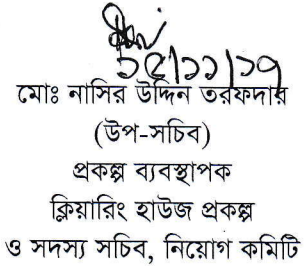 ১৫/১১/১৭
মোঃ নাসির উদ্দিন তরফদার
(উপ-সচিব)
প্রকল্প ব্যবস্থাপক
ক্লিয়ারিং হাউজ প্রকল্প
ও সদস্য সচিব, নিয়োগ কমিটি